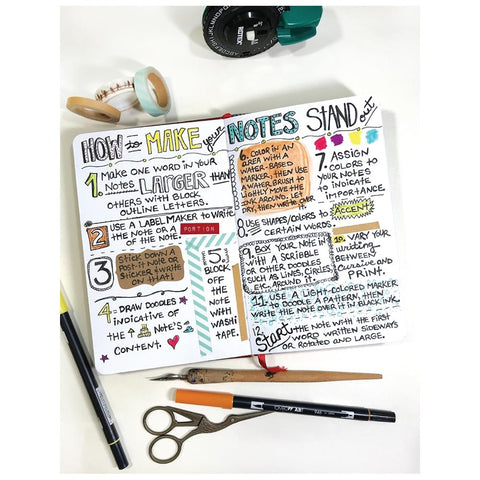 HOW to MAKE your NOTES STAND out
1. MAKE ONE WORD IN YOUR
NOTES LARGER THAN
OTHERS WITH BLOCK
OUTLINE LETTERS.
2 USE A LABEL MAKER TO WRITE
THE NOTE OR A PORTION
OF THE NOTE.
3 STICK DOWN A
POST-IT NOTE OR
STICKER & WRITE
ON THAT!
4= DRAW DOODLES
INDICATIVE OF
THE NOTE'S
CONTENT.
5. BLOCK
OFF
THE
NOTE
WITH
WASHI
TAPE.
6. COLOR IN AN
AREA WITH A
WATER-BASED
MARKER, THEN USE
A WATER BRUSH TO
LIGHTLY MOVE THE
INK AROUND. LET
DRY, THEN WRITE OVER
IT.
7. ASSIGN
COLORS TO
YOUR NOTES
TO INDICATE
IMPORTANCE.
8. USE SHAPES/COLORS TO ACCENT
CERTAIN WORDS.
9. BOX YOUR NOTE IN
WITH A SCRIBBLE
OR OTHER DOODLES
SUCH AS LINES, CIRCLES,
ETC. AROUND IT.
10. VARY YOUR
writing
BETWEEN
Cursive and
PRINT.
11. USE A LIGHT-COLORED MARKER
TO DOODLE A PATTERN, THEN
WRITE THE NOTE OVER IT IN BLACK INK.
12. Start THE NOTE WITH THE FIRST
WORD WRITTEN SIDEWAYS
OR ROTATED AND LARGE.